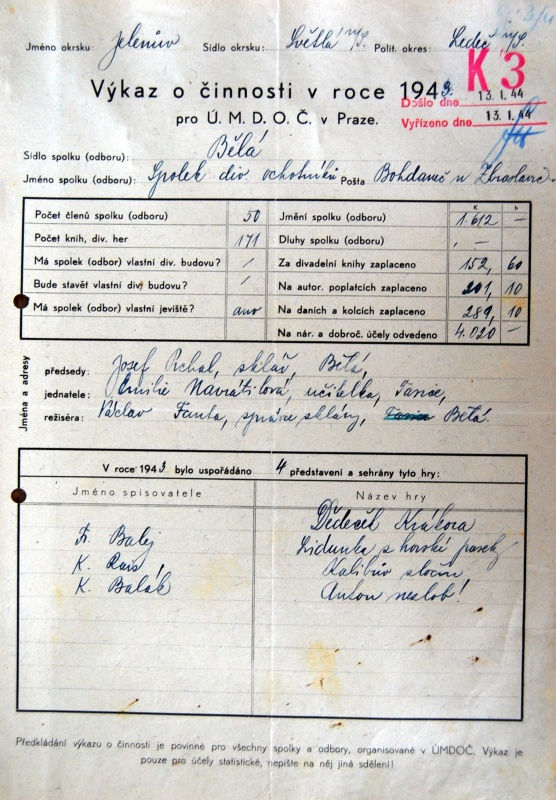 Jméno okrsku: Jelenův Sídlo okrsku: Světlá n/S. Polit. okres: Ledeč n/S.
K 3
Výkaz o činnosti v roce 1943.
Došlo dne 13.I.44
pro Ú. M. D. O. Č. v Praze.
Vyřízeno dne 13.I.44
Sídlo spolku (odboru): Bělá
Jméno spolku (odboru): Spolek div. ochotníků Pošta Bohdaneč u Zbraslavic.
K h
Počet členů spolku (odboru) 50 Jmění spolku (odboru) 1.612 —
Počet knih, div. her 171 Dluhy spolku (odboru) , —
Má spolek (odbor) vlastní div. budovu? / Za divadelní knihy zaplaceno 152, 60
Bude stavět vlastní div. budovu? / Na autor. poplatcích zaplaceno 201, 10
Má spolek (odbor) vlastní jeviště? ano Na daních a kolcích zaplaceno 289, 10
Na nár. a dobroč. účely odvedeno 4.020 —
Jména a adresy
předsedy: Josef sklář, Bělá,
jednatele: Emilie Navrátilová, učitelka,
režiséra: Václav Fanta, správce sklárny, Bělá.
V roce 1943 bylo uspořádáno 4 představení a sehrány tyto hry:
Jméno spisovatele Název hry
Dědeček Krákora
Fr. Balej Lidunka s horské paseky
K. Rais Kalibův zločin
K. Balák Anton neslob!
Předkládání výkazu o činnosti je povinné pro všechny spolky a odbory, organisované v ÚMDOČ. Výkaz je
pouze pro účely statistické, nepište na něj jiná sdělení!